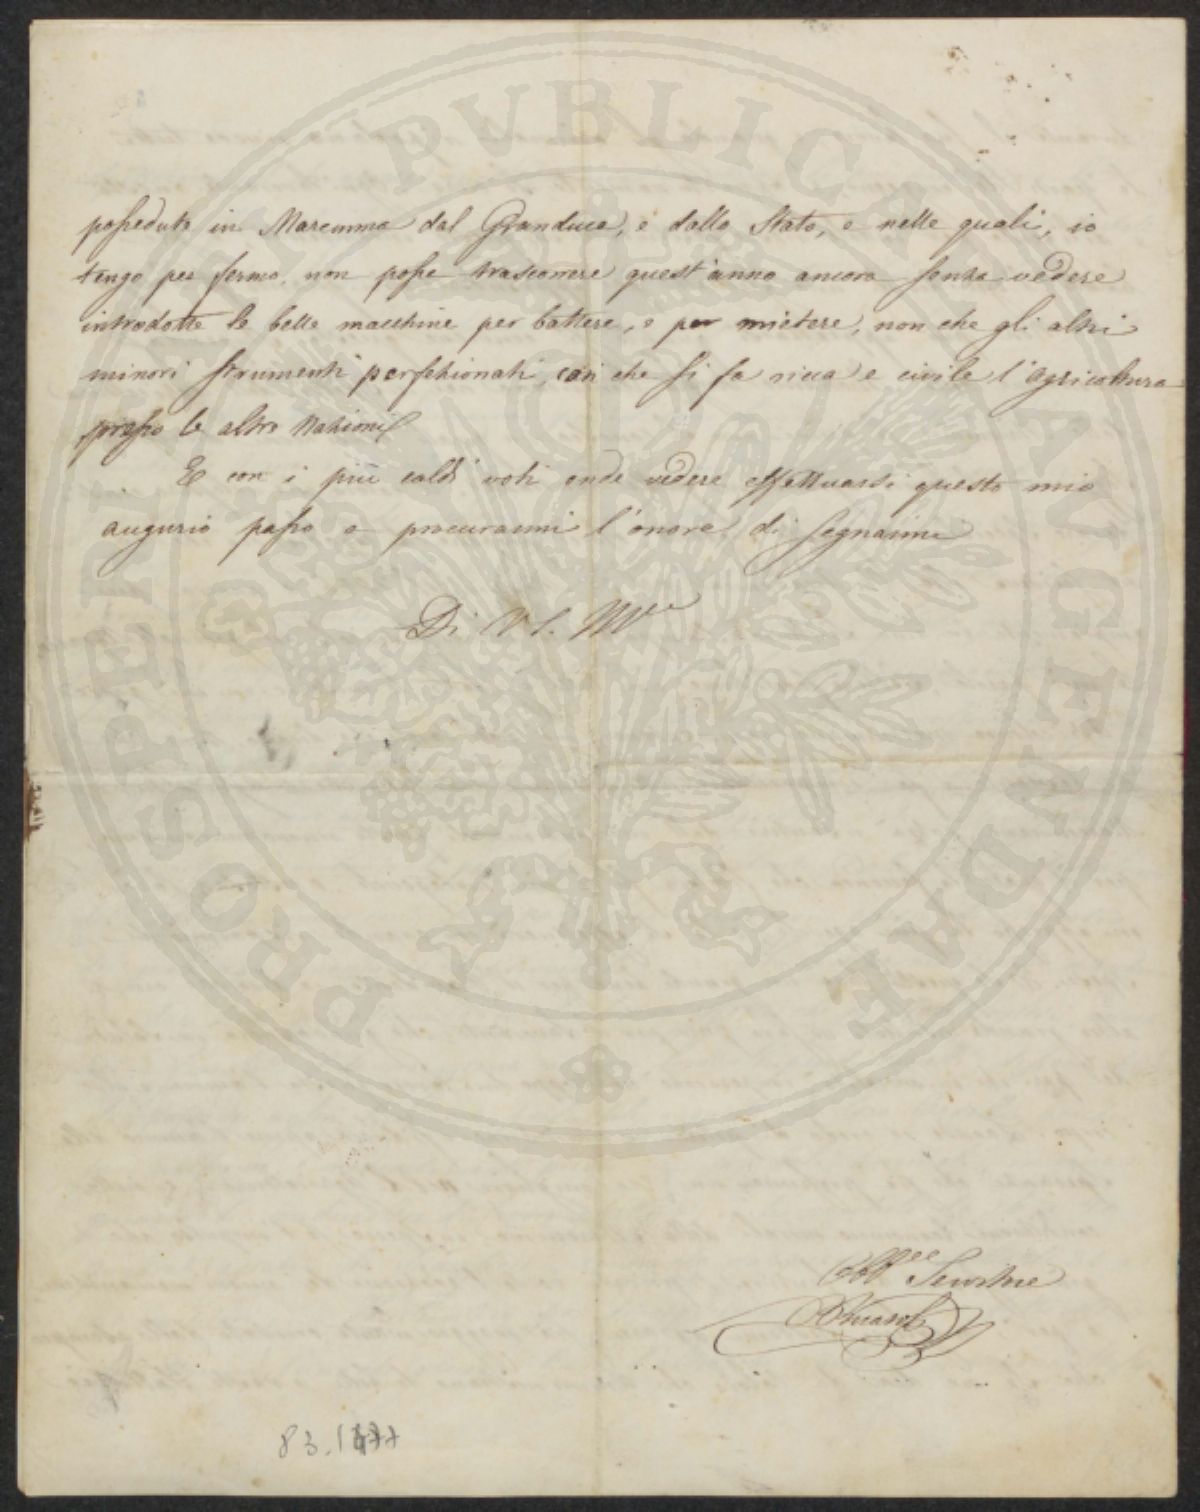 possedute in Maremma dal Granduca, e dallo Stato, e nelle quali, io
tengo per fermo, non posse trascorrere quest'anno ancora senza vedere
introdotte le belle macchine per battere, e per mietere, non che gli altri
minori strumenti perfezionati, con che si fa ricca e civile l'agricoltura
presso le altre Nazioni
E con i più caldi voti onde vedere effettuarsi questo mio
augurio passo a procurarmi l'onore di segnarmi
Di V. S. Ill
Obb Servitore
83.1
PROSPERITATI PVBLICAE AVGENDAE